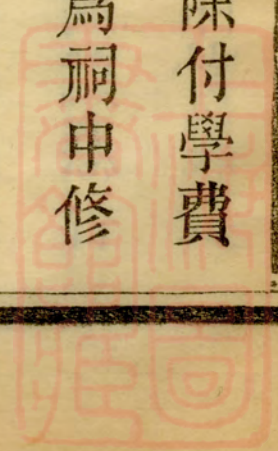 除付學費
爲祠中修